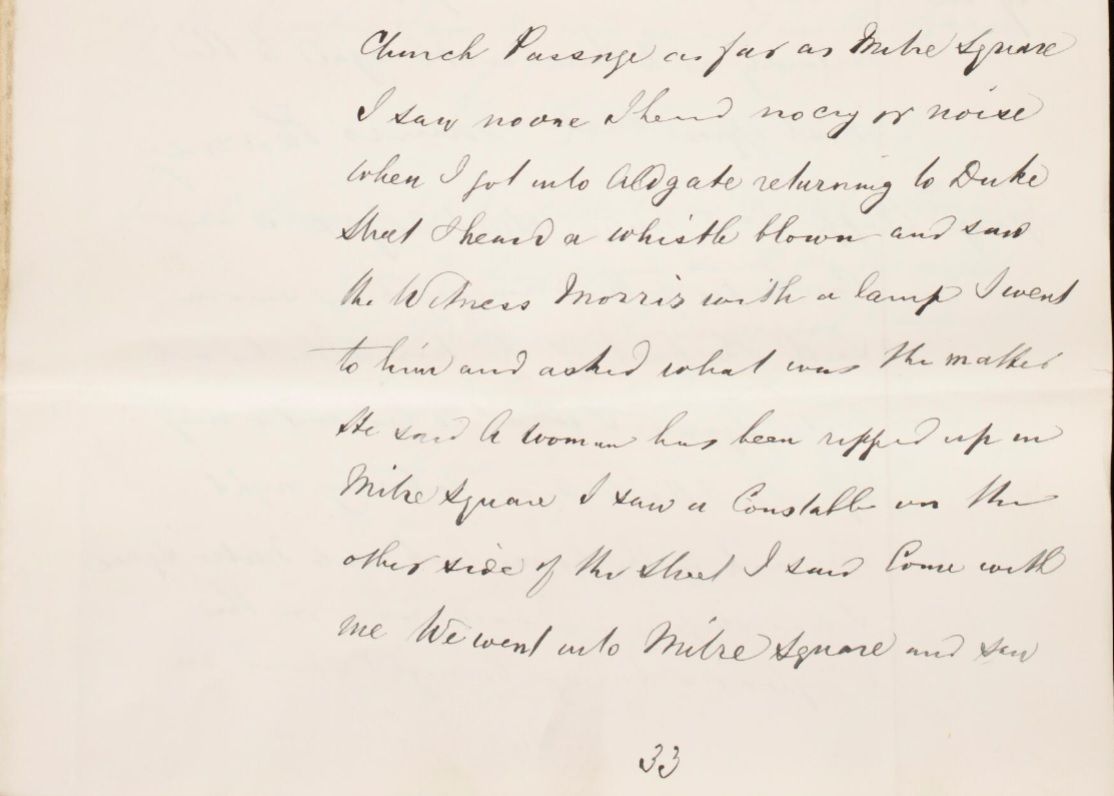 Church Passage as far as Mitre Square
I saw no one I heard no cry or noise
when I got into Aldgate returning to Duke
Street I heard a whistle blown and saw
the Witness Morris with a lamp I went
to him and asked what was the matter
He said A woman has been ripped up in
Mitre Square I saw a Constable on the
other side of the Street I said Come with
me We went into Mitre Square and saw
33